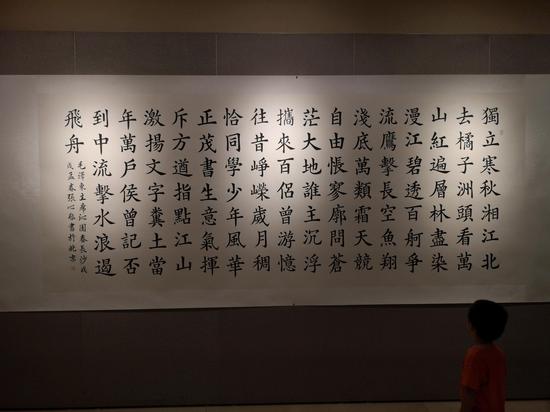 獨立寒秋湘江北
去橘子洲頭看萬
山紅遍層林盡染
漫江碧透百舸爭
流鷹擊長空魚翔
淺底萬類霜天競
自由悵寥廓問蒼
茫大地誰主沉浮
攜來百侶曾游憶
往昔崢嶸歲月稠
恰同學少年風華
正茂書生意氣揮
斥方道指點江山
激揚文字糞土當
年萬戶侯曾記否
到中流擊水浪遏
飛舟
毛澤東主席沁園春長沙戊
戌孟春張心書於北京